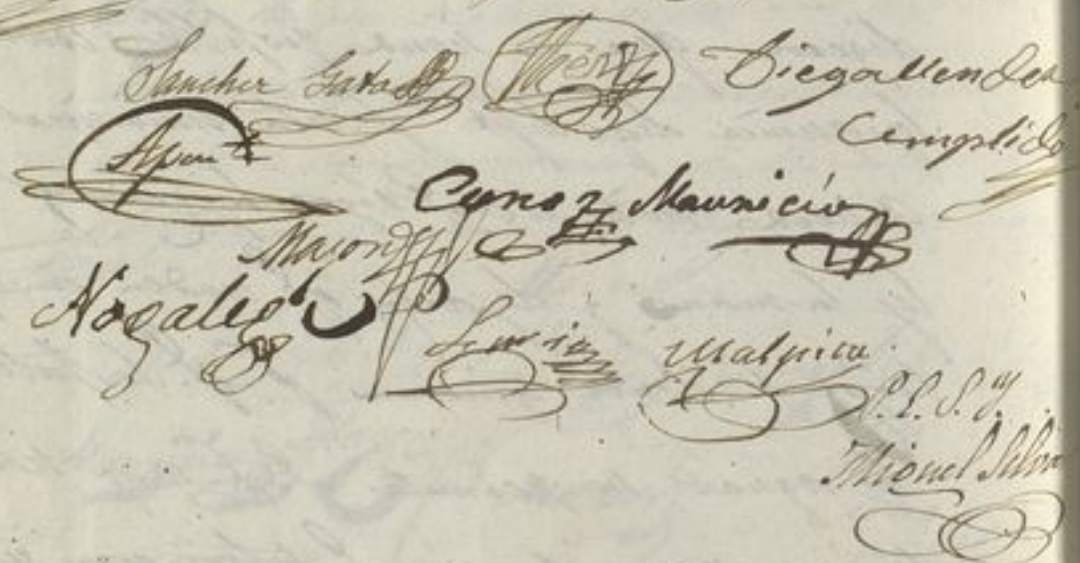 Sanchez Gata
Diego Mendez
Cumplido
Aponte
Mauricio
Mayor
Nogales
Malpica
P. E. S. Y.
Miguel Silva